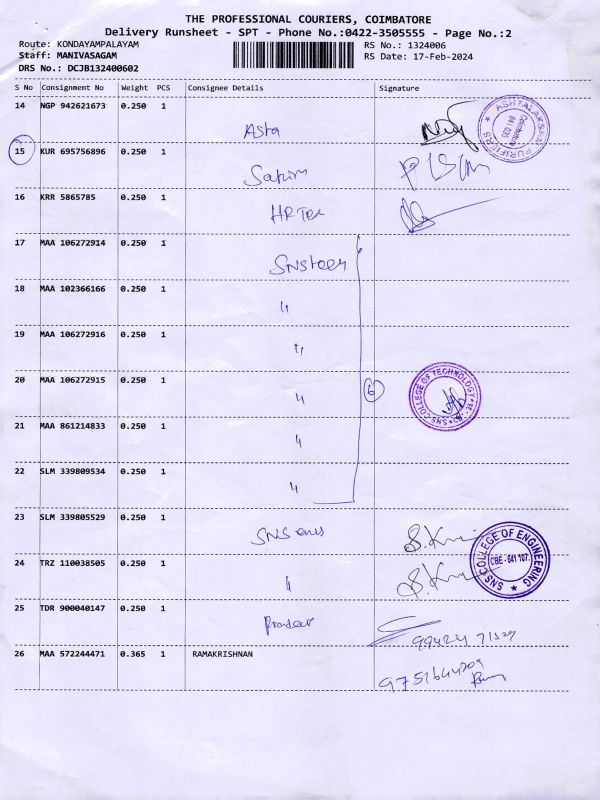 THE PROFESSIONAL COURIERS, COIMBATORE
Delivery Runsheet - SPT - Phone No.:0422-3505555 - Page No.:2
Route: KONDAYAMPALAYAM
RS No.: 1324006
Staff: MANIVASAGAM
RS Date: 17-Feb-2024
DRS No.: DCJB132400602
S No Consignment No Weight PCS Consignee Details Signature
14 NGP 942621673 0.250 1
Asta
ASHTALAKSHMI PURIFIERS Coimbatore 641 035
15 KUR 695756896 0.250 1
16 KRR 5865785 0.250 1
HR Tex
17 MAA 106272914 0.250 1
SNS tech
18 MAA 102366166 0.250 1
"
19 MAA 106272916 0.250 1
"
20 MAA 106272915 0.250 1
"
6
SNS COLLEGE OF TECHNOLOGY
21 MAA 861214833 0.250 1
"
22 SLM 339809534 0.250 1
"
23 SLM 339805529 0.250 1
SNS
SNS COLLEGE OF ENGINEERING CBE - 641 107.
24 TRZ 110038505 0.250 1
"
25 TDR 900040147 0.250 1
26 MAA 572244471 0.365 1 RAMAKRISHNAN